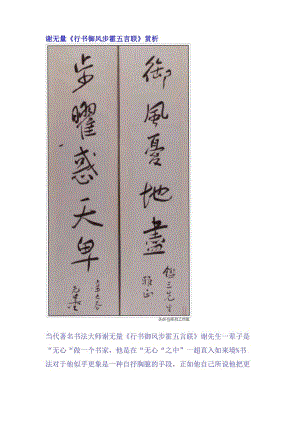 谢无量《行书御风步霍五言联》赏析
御風憂地盡
步曜惑天卑
雅正
当代著名书法大师谢无量《行书御风步霍五言联》谢先生一辈子是
“无心“做一个书家，他是在“无心“之中”一超直入如来境%书
法对于他似乎更象是一种自抒胸臆的手段，正如他自己所说他把更